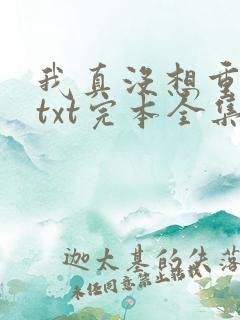 我真没想重
txt完本全集
迦太基的失落
未经同意禁止转载